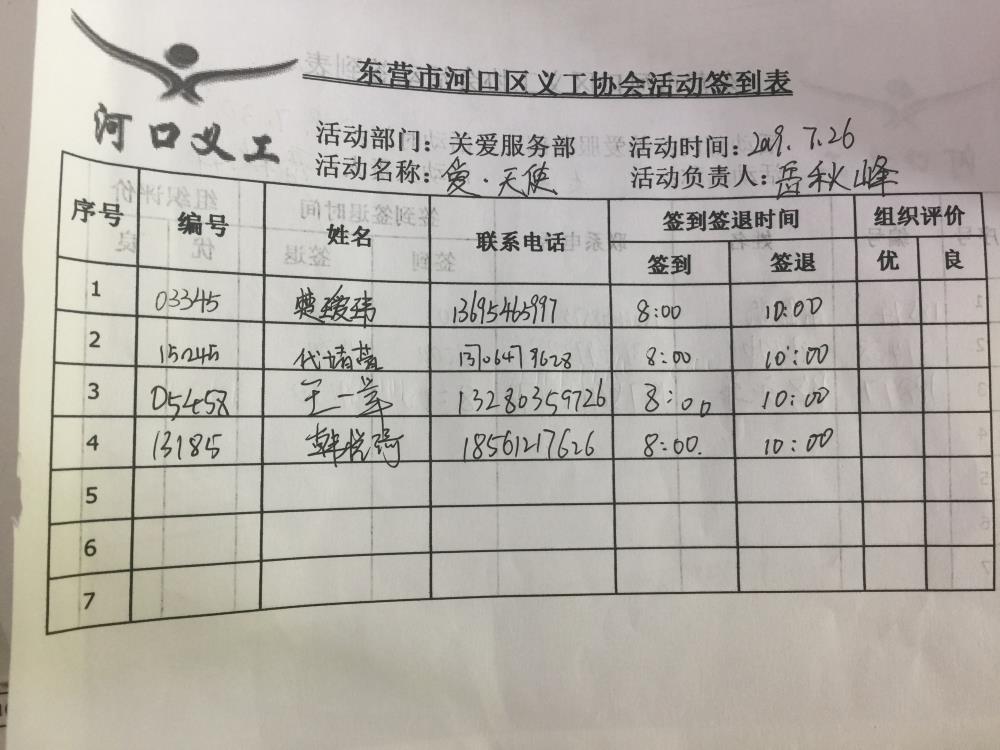 东营市河口区义工协会活动签到表
河口义工
活动部门：关爱服务部 活动时间：2019.7.26
活动名称：爱·天使 活动负责人：岳秋峰
序号 编号 姓名 联系电话 签到签退时间 组织评价
签到 签退 优 良
1 03345 13695465997 8:00 10:00
2 15245 13706479628 8:00 10:00
3 05458 王一 13280359726 8:00 10:00
4 13185 韩悦琦 18561217626 8:00. 10:00
5
6
7